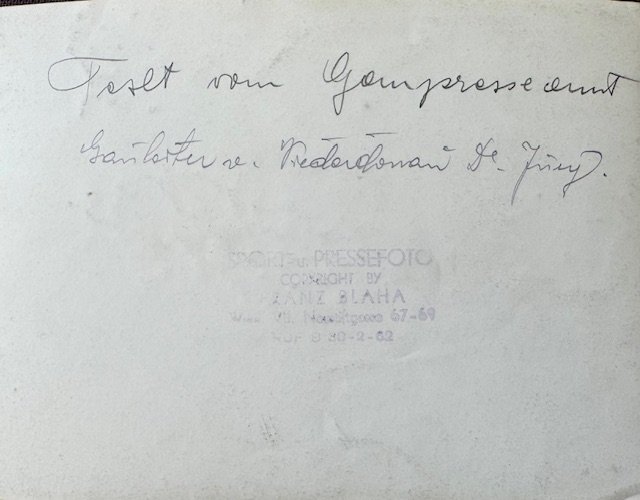 Teslt vom Gaupresseamt
Gauleiter v. Niederdonau Dr. Jury.
SPORT- u. PRESSEFOTO
COPYRIGHT BY
FRANZ BLAHA
Wien VII. 67-69
RUF B 30-2-62